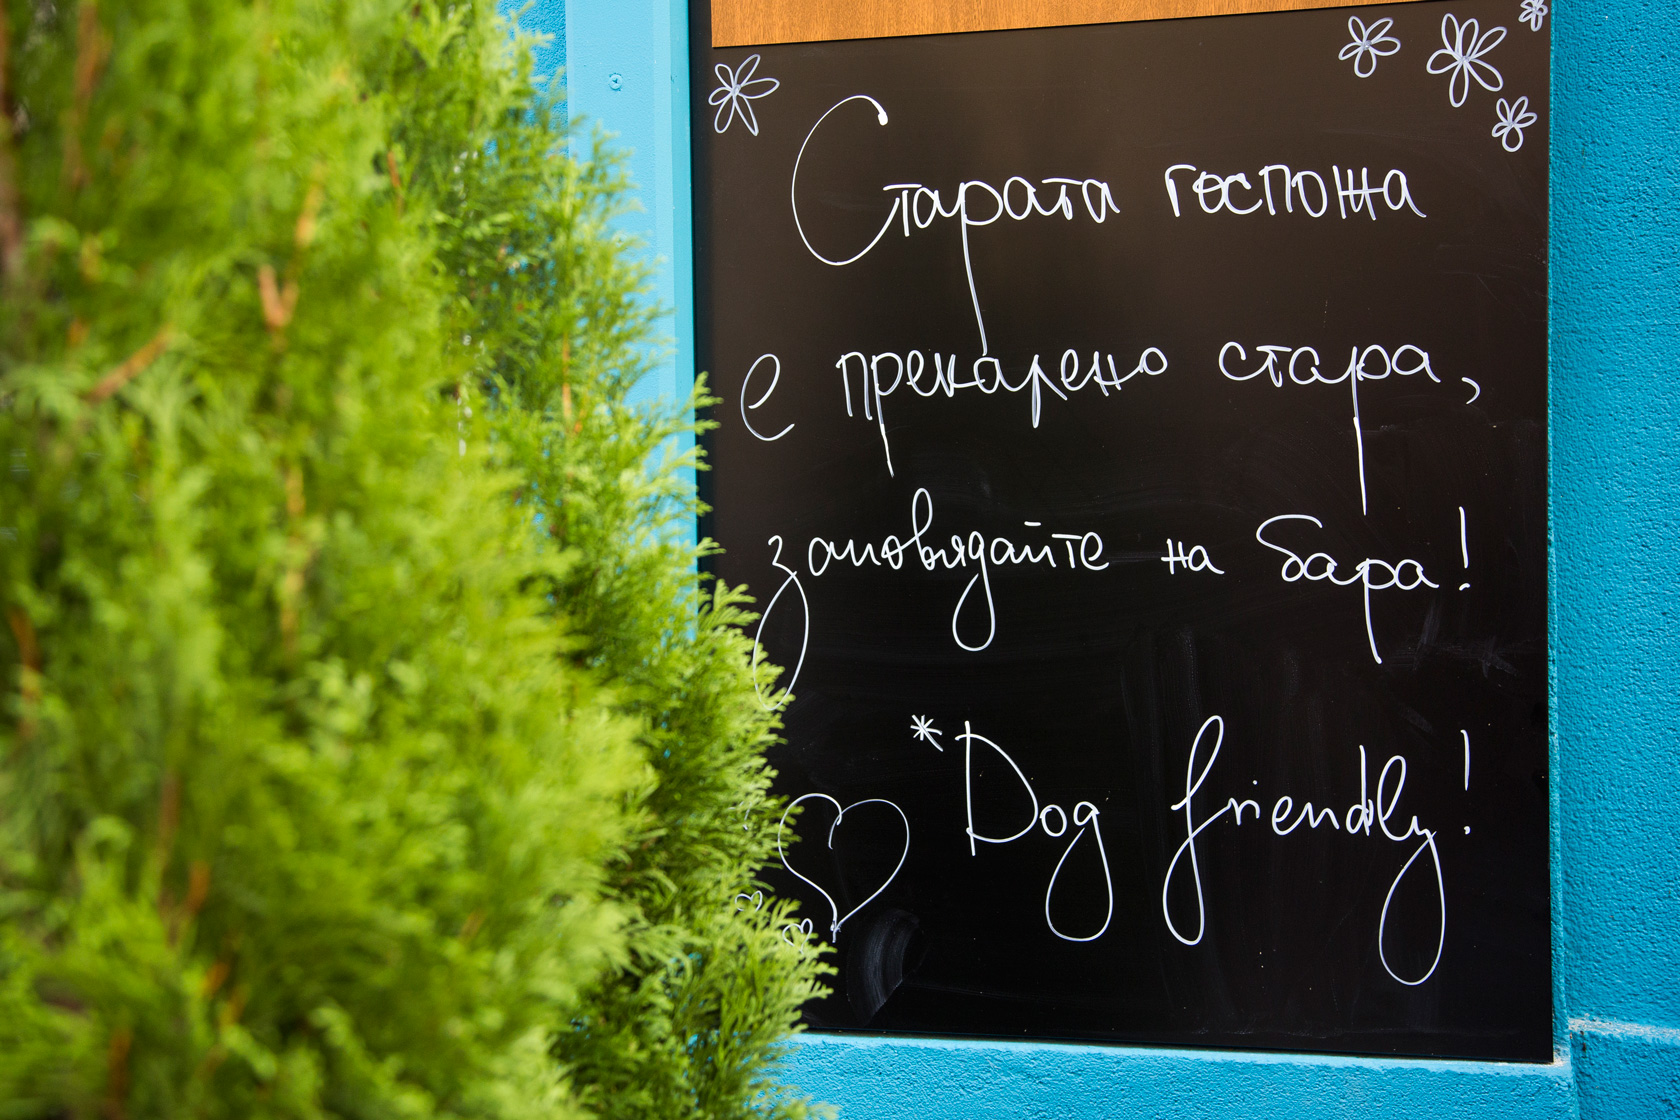 Старата госпожа
е прекарено стара,
заповядайте на бара!
*Dog friendly!